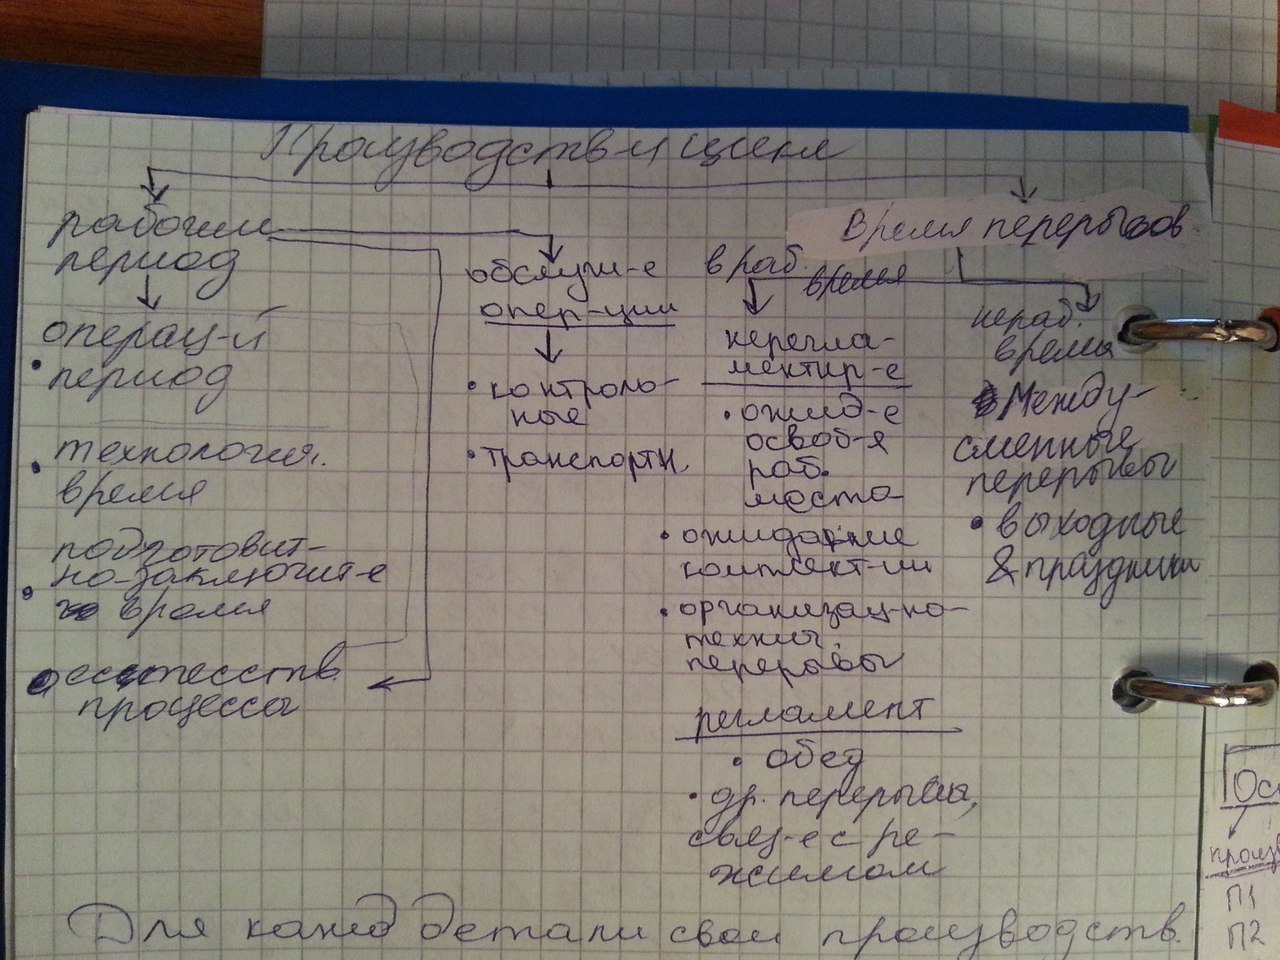 Производств-й цикл
рабочий
период
операц-й
период
технологич.
время
подготовит-
но-заключит-е
время
естеств.
процессы
обслуж-е
опер-ции
контроль-
ные
транспортн.
Время перерывов.
в раб.
время
нерегла-
ментир-е
ожид-е
освоб-я
раб.
места
ожидание
комплект-ии
организац-но-
технич.
перерывы
регламент
обед
др. перерывы,
связ-е с ре-
жимом
нераб.
время
Между-
сменные
перерывы
выходные
& праздники
Для кажд детали свой производств.
Ос
произв
П1
П2